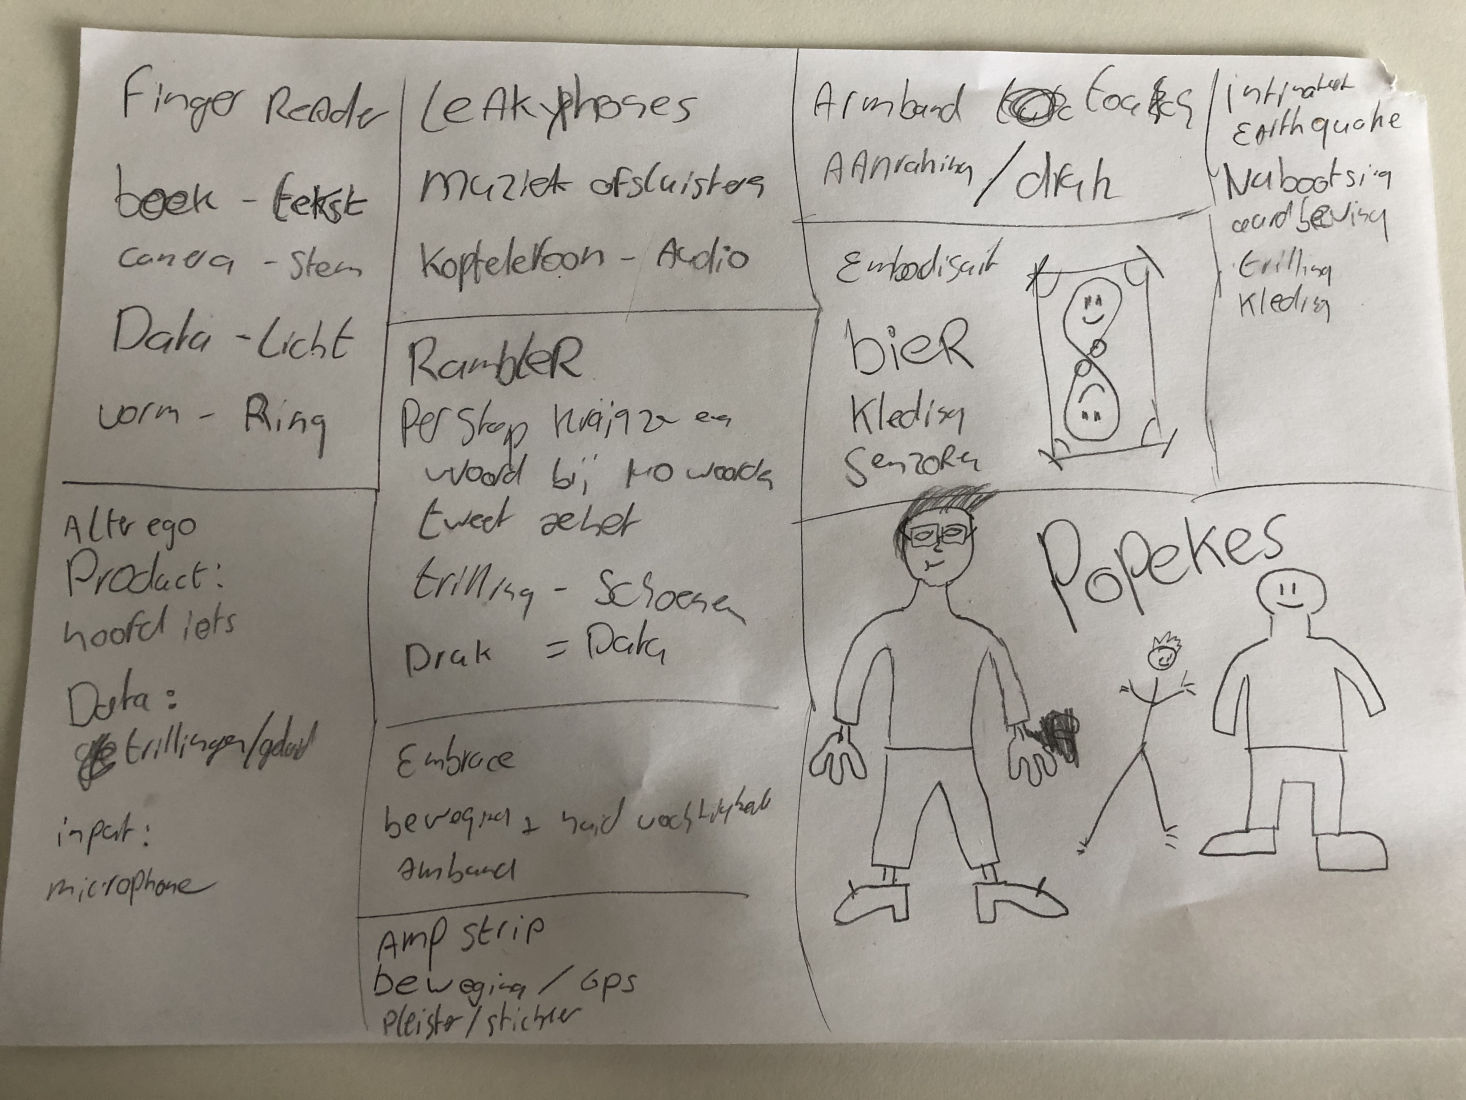 Finger Reader
boek - tekst
camera - Stem
Data - Licht
vorm - Ring
Alter ego
Product:
hoofd iets
Data:
trillingen/geluid
input:
microphone
Leakyphones
Muziek afsluisteren
Koptelefoon - Audio
RambleR
Per stap krijg je een
woord bij 140 woorden
tweet
trilling - Schoenen
Druk = Data
Embrace
beweging + huid vochtigheid
armband
Amp strip
beweging / GPS
pleister/sticker
Armband touch
Aanraking / druk
Embodisuit
bieR
Kleding
Senzoren
Earthquake
Nabootsing
aardbeving
trilling
Kleding
Popekes